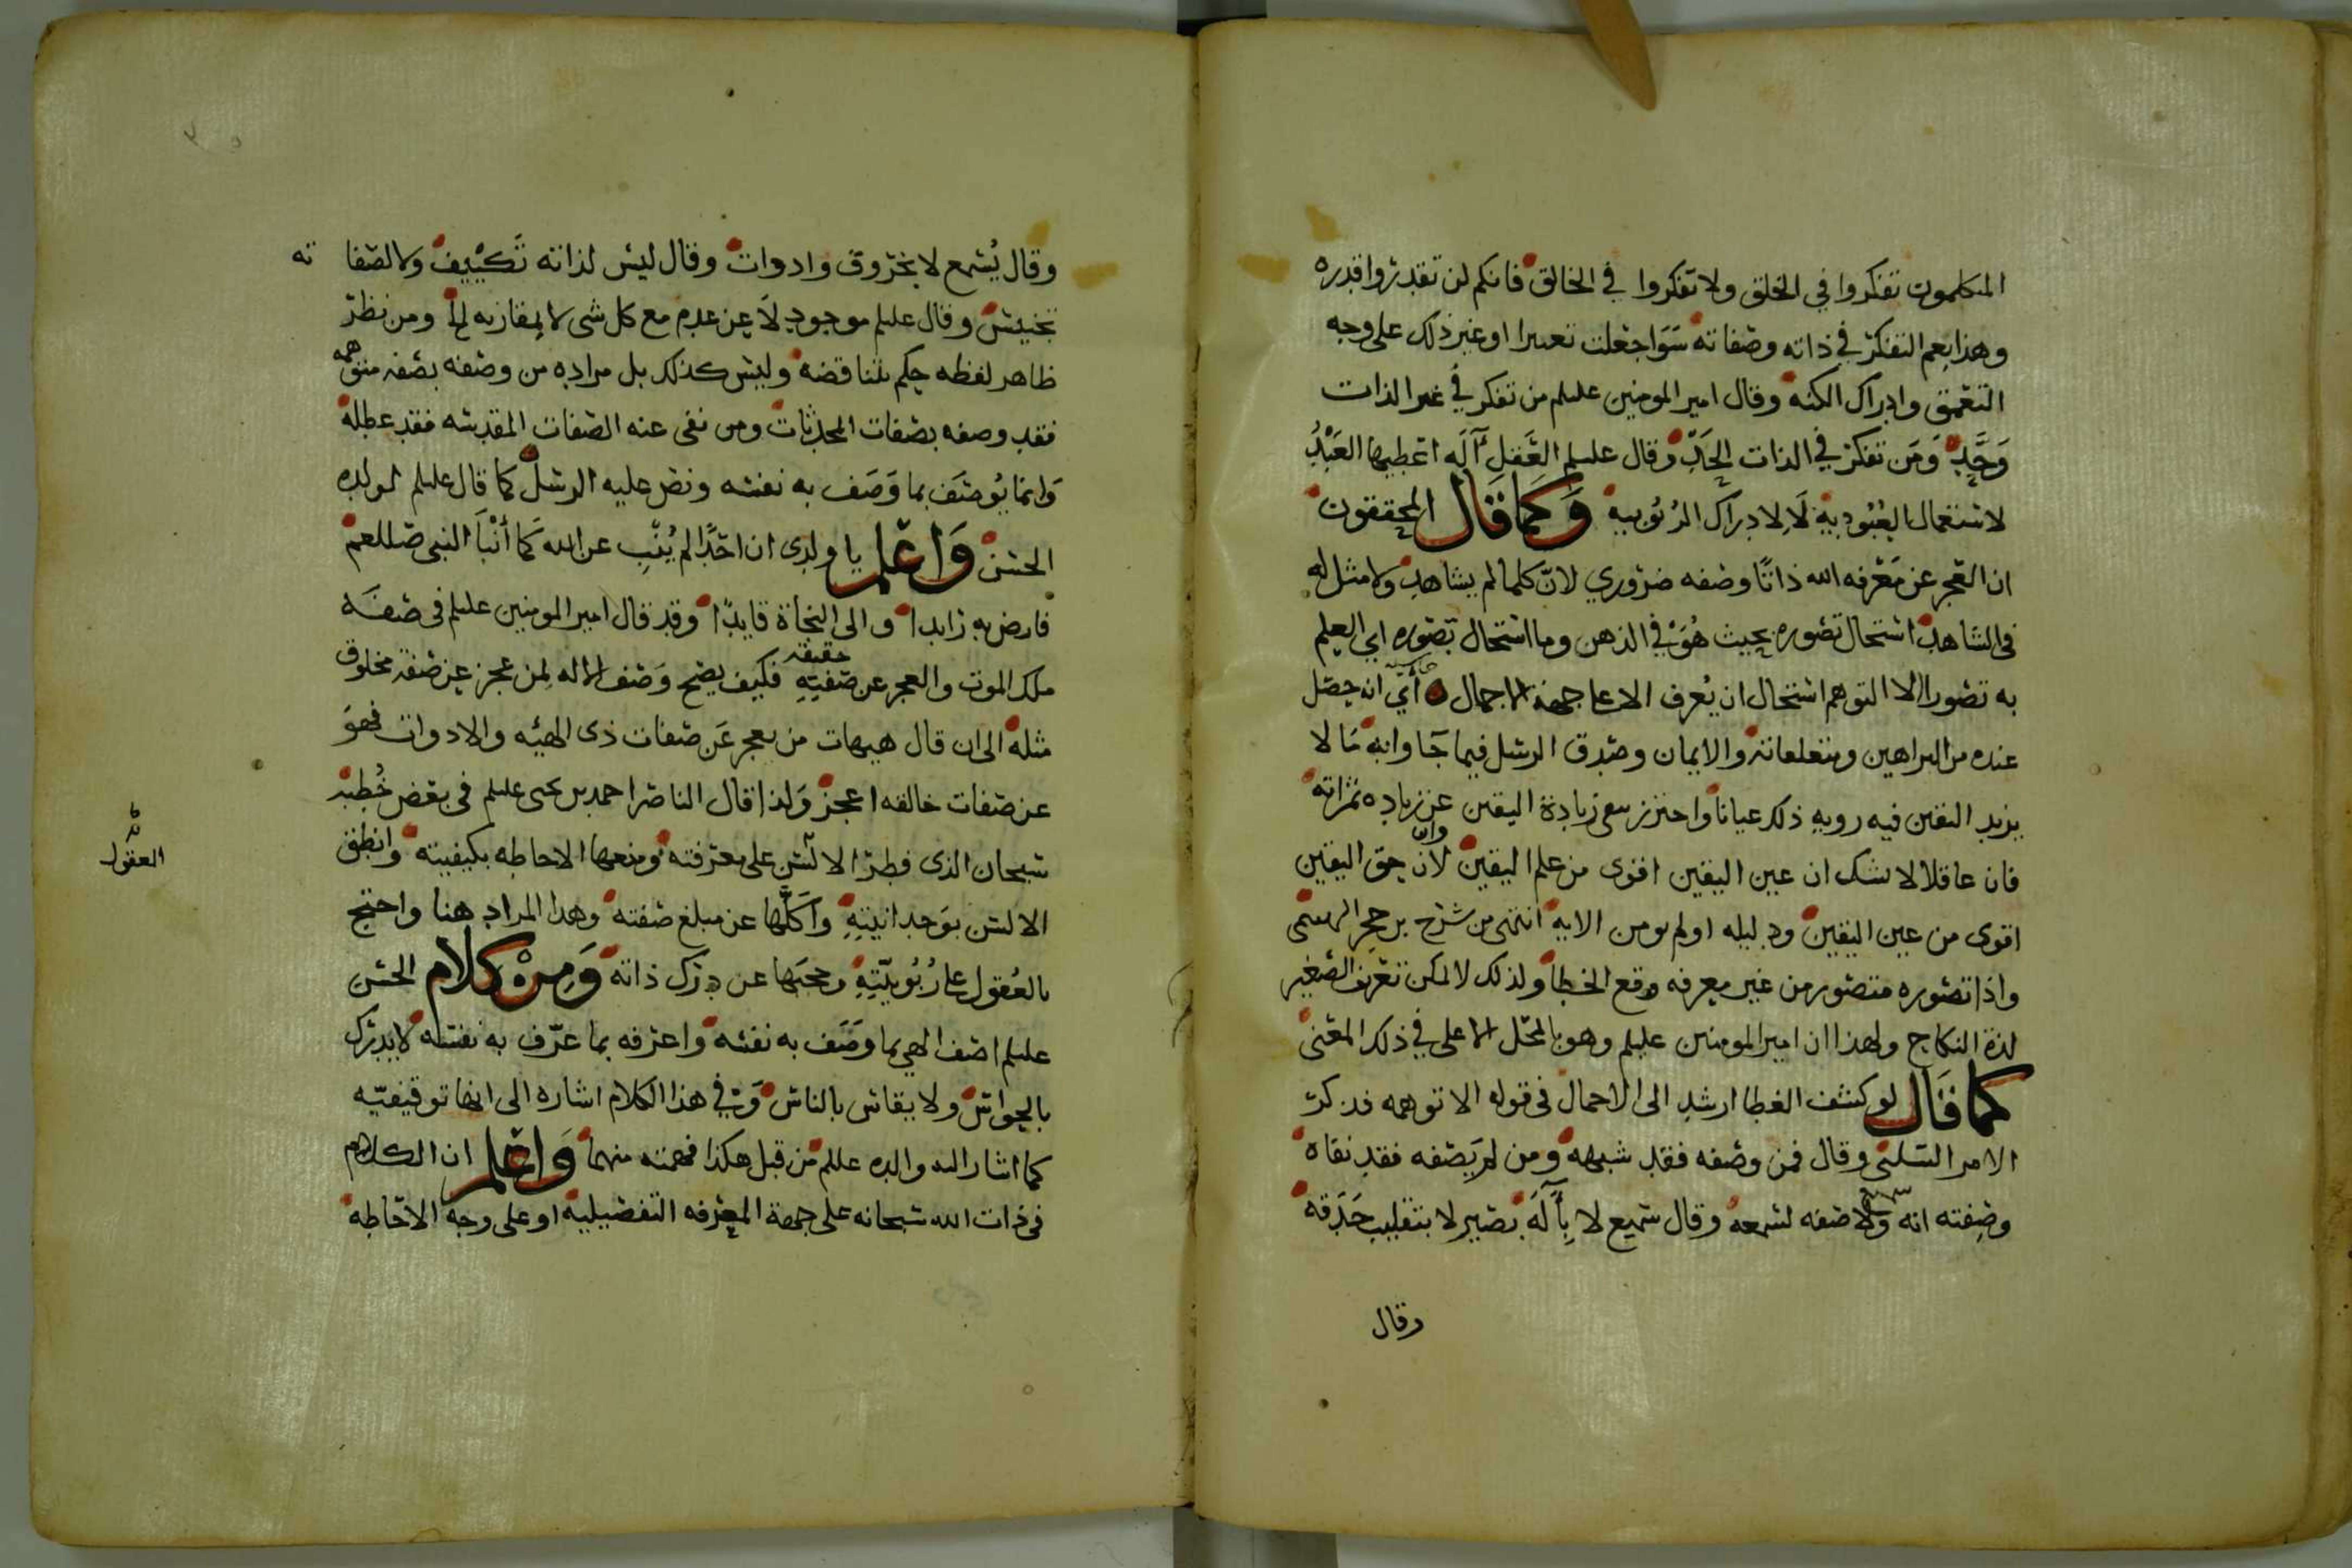 المتكلمون تفكروا في الخلق ولا تفكروا في الخالق فانكم لن تقدروا قدره
وهذا يعم التفكر في ذاته وصفاته سوا جعلت تفسيرا او غير ذلك على وجه
التعمق وادراك الكنه وقال امير المومنين عليلم من تفكر في غير الذات
وَحَّدَ وَمَن تفكر في الذات الحَدَ وقال عليلم العَقل آلَه اعطيها العَبْدُ
لاستعمال العُبُودية لَا لادراك الرُبُوبية وَكَمَا قَال المحققون
ان العجز عن مَعْرفه الله ذاتًا وصفه ضروري لانّ كلما لم يشاهد ولا مثل له
في الشاهد استحال تصوره بحيث هُوَ في الذهن وما استحال تصوره اي العلم
به تصورا الا التوهم استحال ان يُعرف الا على جهة الاجمال أي انه حصل
عنده من البراهين ومتعلقاته والايمان وصدق الرسل فيما جَا وابه مَا لا
يزيد اليقين فيه رويه ذلك عيانا واحترز بنفي زيادة اليقين عن زياده ثمراته
فان عاقلا لا يشك ان عين اليقين اقوى من علم اليقين وان حق اليقين
اقوى من عين اليقين ودليله اولم تومن الايه انتهى من شرح بن حجر الهيتمى
واذا تصوره متصور من غير معرفه وقع الخطا ولذلك لا يمكن تعريف الصغير
لذة النكاح ولهذا ان امير المومنين عليلم وهو بالمحل الاعلى في ذلك المعنى
كما قَال لو كشف الغطا ارشد الى الاجمال في قوله الا توهمه فذكر
الامر السلبي وقال فمن وصفه فقد شبهه ومن لم يَصفه فقد نفاه
وصفته انه ولا صفه لسمعه وقال سَميع لا بِآلَه بَصير لا بتقليب حَدَقه
وقال
وقال يُسْمع لا بخروق وادوات وقال ليس لذاته تَكْيِيف ولا لصفاته
تجنيس وقال عليلم موجود لَا عن عدم مع كل شي لا بمقارنه لها ومن نظر
ظاهر لفظه حكم بتناقضه وليس كذلك بل مراده من وصفه بصفه متوهمه
فقد وصفه بصفات المحدثات ومن نفى عنه الصفات المقدسه فقد عطله
وَانما يُوصَف بما وَصَف به نفسه ونص عليه الرسل كما قال عليلم لولده
الحسن وَاعْلم يا ولدى ان احَدًا لم يُنْبِ عن الله كَمَا أنْبَأ النبى صللعم
فارض به رايدا والى النجاة قايدًا وقد قال امير المومنين عليلم في صفَه
ملك الموت والعجز عن صفَتِهِ حقيقة فكيف يصح وَصْف الاله لمن عجز عن صفة مخلوق
مثله الى ان قال هيهات من يعجز عَن صفات ذى الهيئه والادوات فهوَ
عن صفات خالقه اعجز وَلذا قال الناصر احمد بن يحيى عليلم في بعض خُطَبِه
سبحان الذى فطر الالسُن على معرفته ومنعها الاحاطه بكيفيته وانطق
العقول
الالسن بوَحدانيتِهِ وَاكَلَّهَا عن مبلغ صفته وهذا المراد هنا واحتج
بالعُقول على رُبُوبيّتِهِ وحجبها عن درك ذاته وَمِنْ كلام الحسَن
عليلم اصف الهي بما وَصَف به نفسَه واعرفه بما عرّف به نفسَه لا يدرك
بالحواس ولا يقاس بالناس وَ في هذا الكلام اشاره الى انها توقيفيّه
كما اشار اليه والده عليلم من قبل هكذا فهمته منهما وَاعْلم ان الكلام
في ذات الله سبحانه على جهة المعرفه التفصيلية او على وجه الاحَاطه